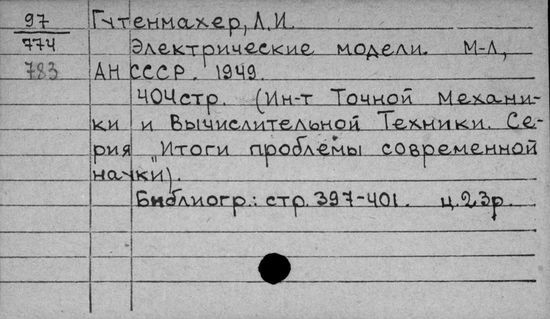 97 Гутенмахер, Л.И.
774 Электрические модели. М-Л,
783 АН СССР. 1949.
404 стр. (Ин-т Точной Механи-
ки и Вычислительной Техники. Се-
рия "Итоги проблемы современной
науки).
Библиогр.: стр. 397-401. ц. 23р.